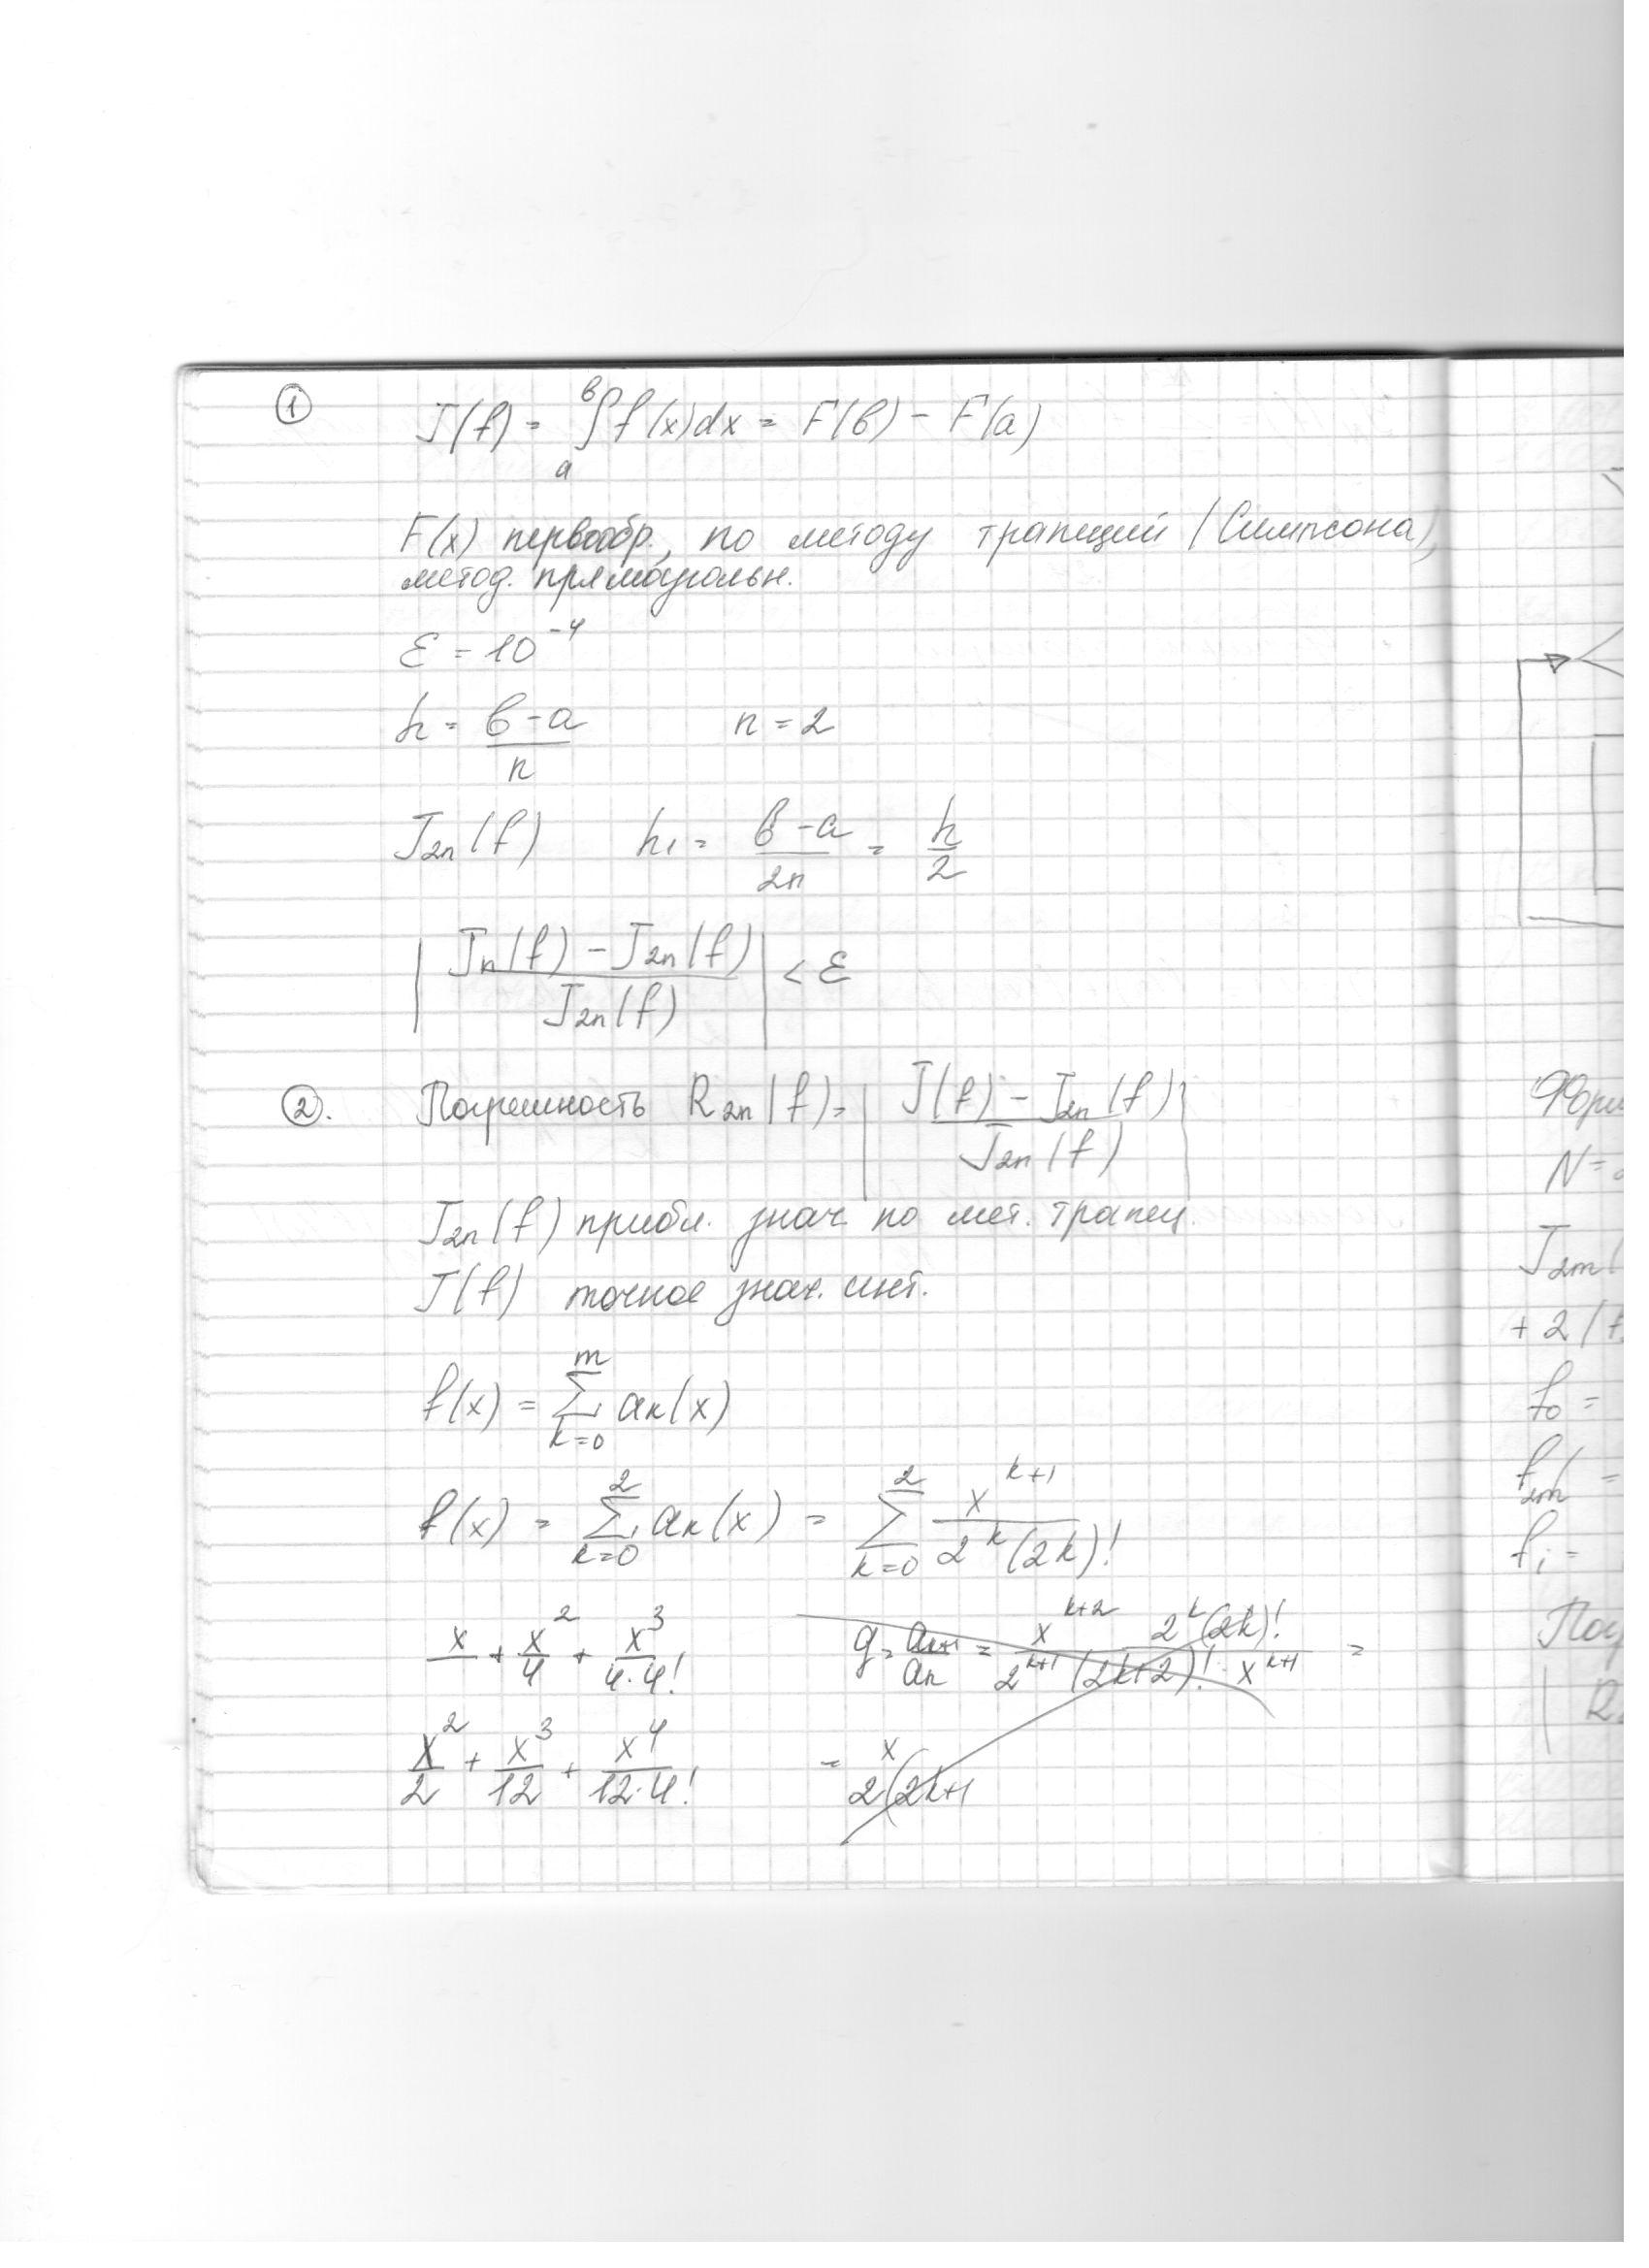 ① J(f) = ∫ₐᵇ f(x)dx = F(b) - F(a)
F(x) первообр., по методу трапеций (Симпсона),
метод. прямоугольн.
ε = 10⁻⁴
h = (b-a)/n    n = 2
J₂ₙ(f)    h₁ = (b-a)/2n = h/2
|(Jₙ(f) - J₂ₙ(f))/J₂ₙ(f)| < ε
②. Погрешность R₂ₙ(f) = |(J(f) - J₂ₙ(f))/J₂ₙ(f)|
J₂ₙ(f) прибл. знач. по мет. трапец.
J(f) точное знач. инт.
f(x) = Σₖ₌₀ᵐ aₖ(x)
f(x) = Σₖ₌₀² aₖ(x) = Σₖ₌₀² x^(k+1)/(2^k(2k)!)
x + x²/4 + x³/(4·4!)    q = aₖ₊₁/aₖ = x^(k+2)/(2^(k+1)(2k+2)!) · 2^k(2k)!/x^(k+1) =
x²/2 + x³/12 + x⁴/(12·4!)    = x/(2(2k+1
N =
J₂ₘ(
+ 2(f
f₀ =
f₂ₘ =
fᵢ =